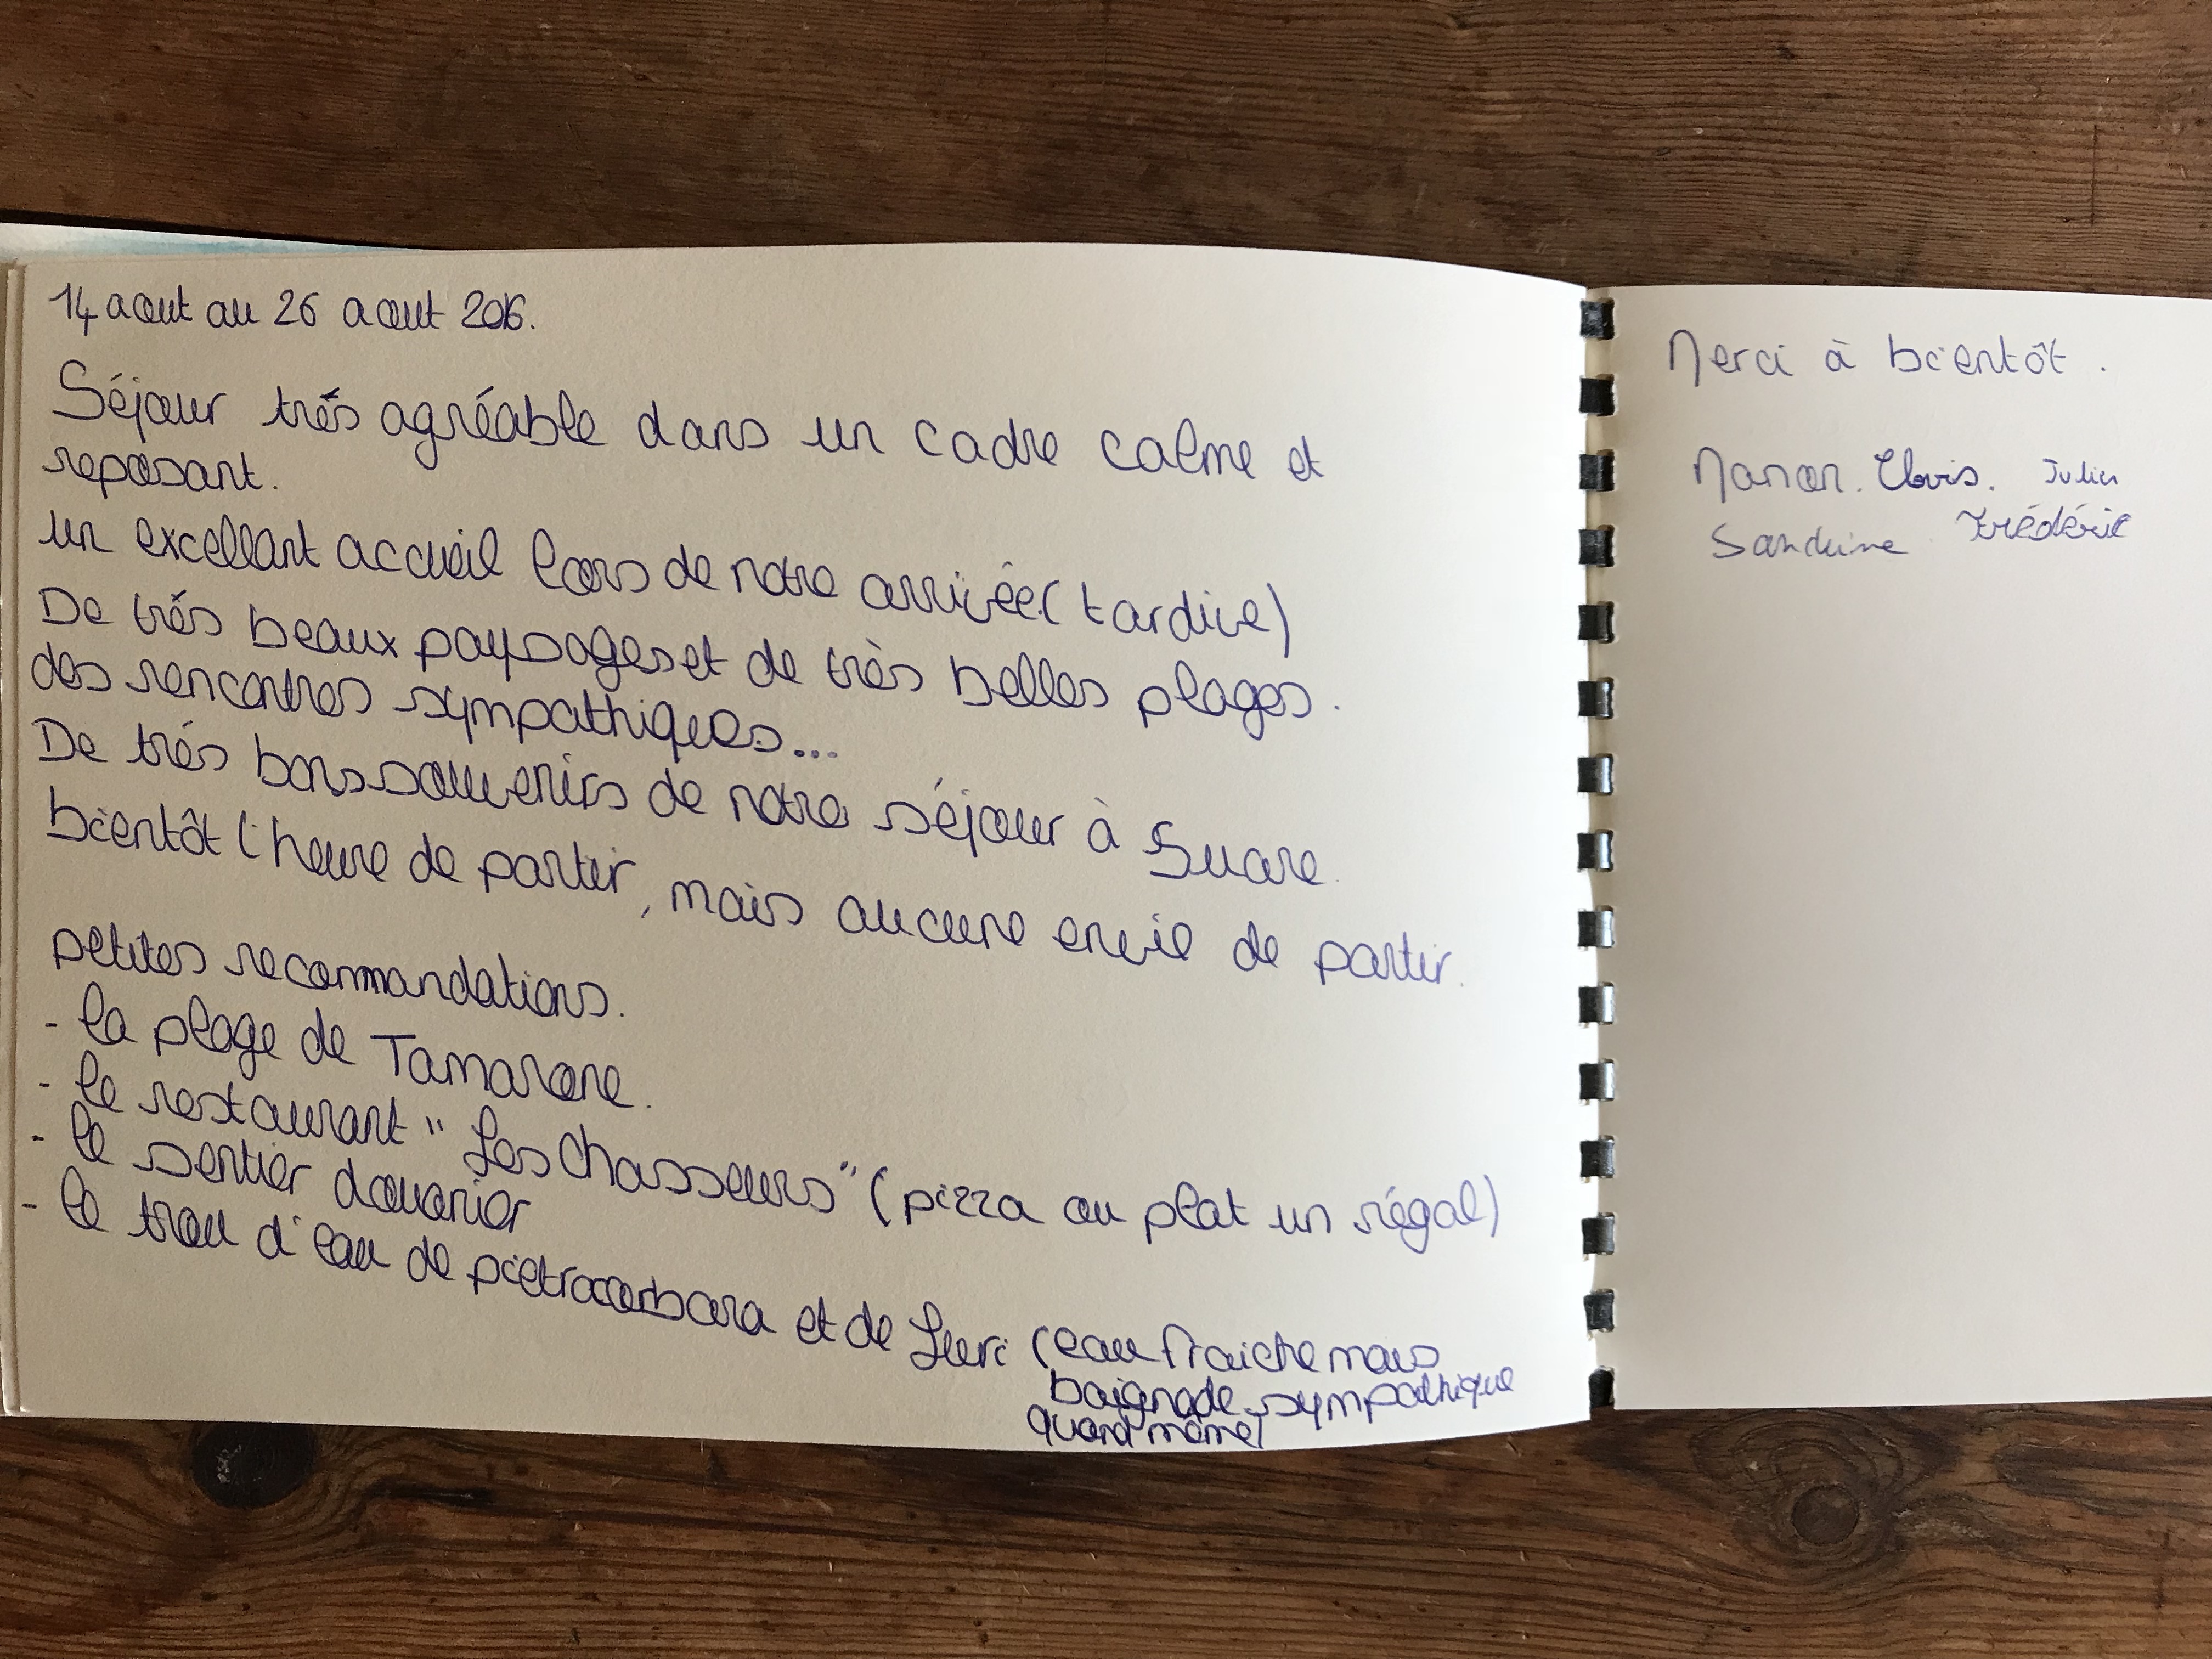 14 aout au 26 aout 2016.
Séjour trés agréable dans un cadre calme et
reposant.
un excellant accueil lors de notre arrivée (tardive)
De trés beaux paysages et de très belles plages.
des rencontres sympathiques...
De trés bons souvenirs de notre séjour à Suare.
bientôt l'heure de partir, mais aucune envie de partir.
petites recommandations.
- la plage de Tamarone.
- le restaurant "Les Chasseurs" (pizza ou plat un régal)
- le sentier douanier
- le trou d'eau de pietracorbara et de Luri (eau fraiche mais
baignade sympathique
quand même)
Merci à bientôt.
Manon. Clovis. Julien
Sandrine Frédéric